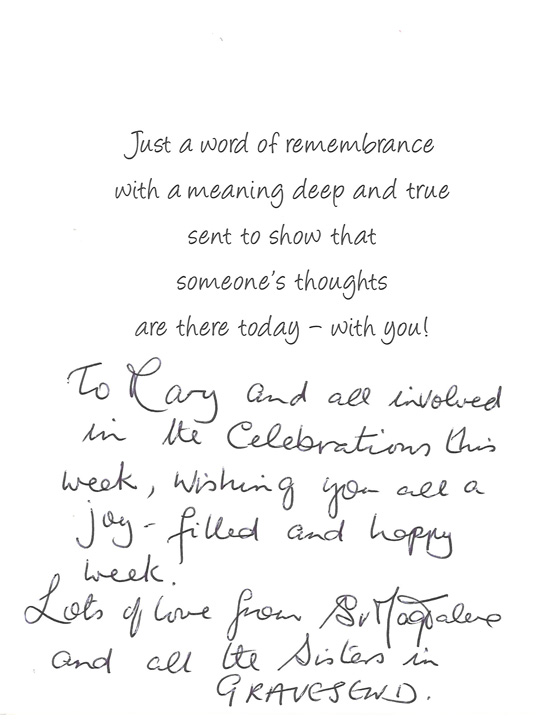 Just a word of remembrance
with a meaning deep and true
sent to show that
someone's thoughts
are there today – with you!
To Mary and all involved
in the Celebrations this
week, wishing you all a
joy-filled and happy
week.
Lots of love from Sr Magdalene
and all the Sisters in
GRAVESEND.